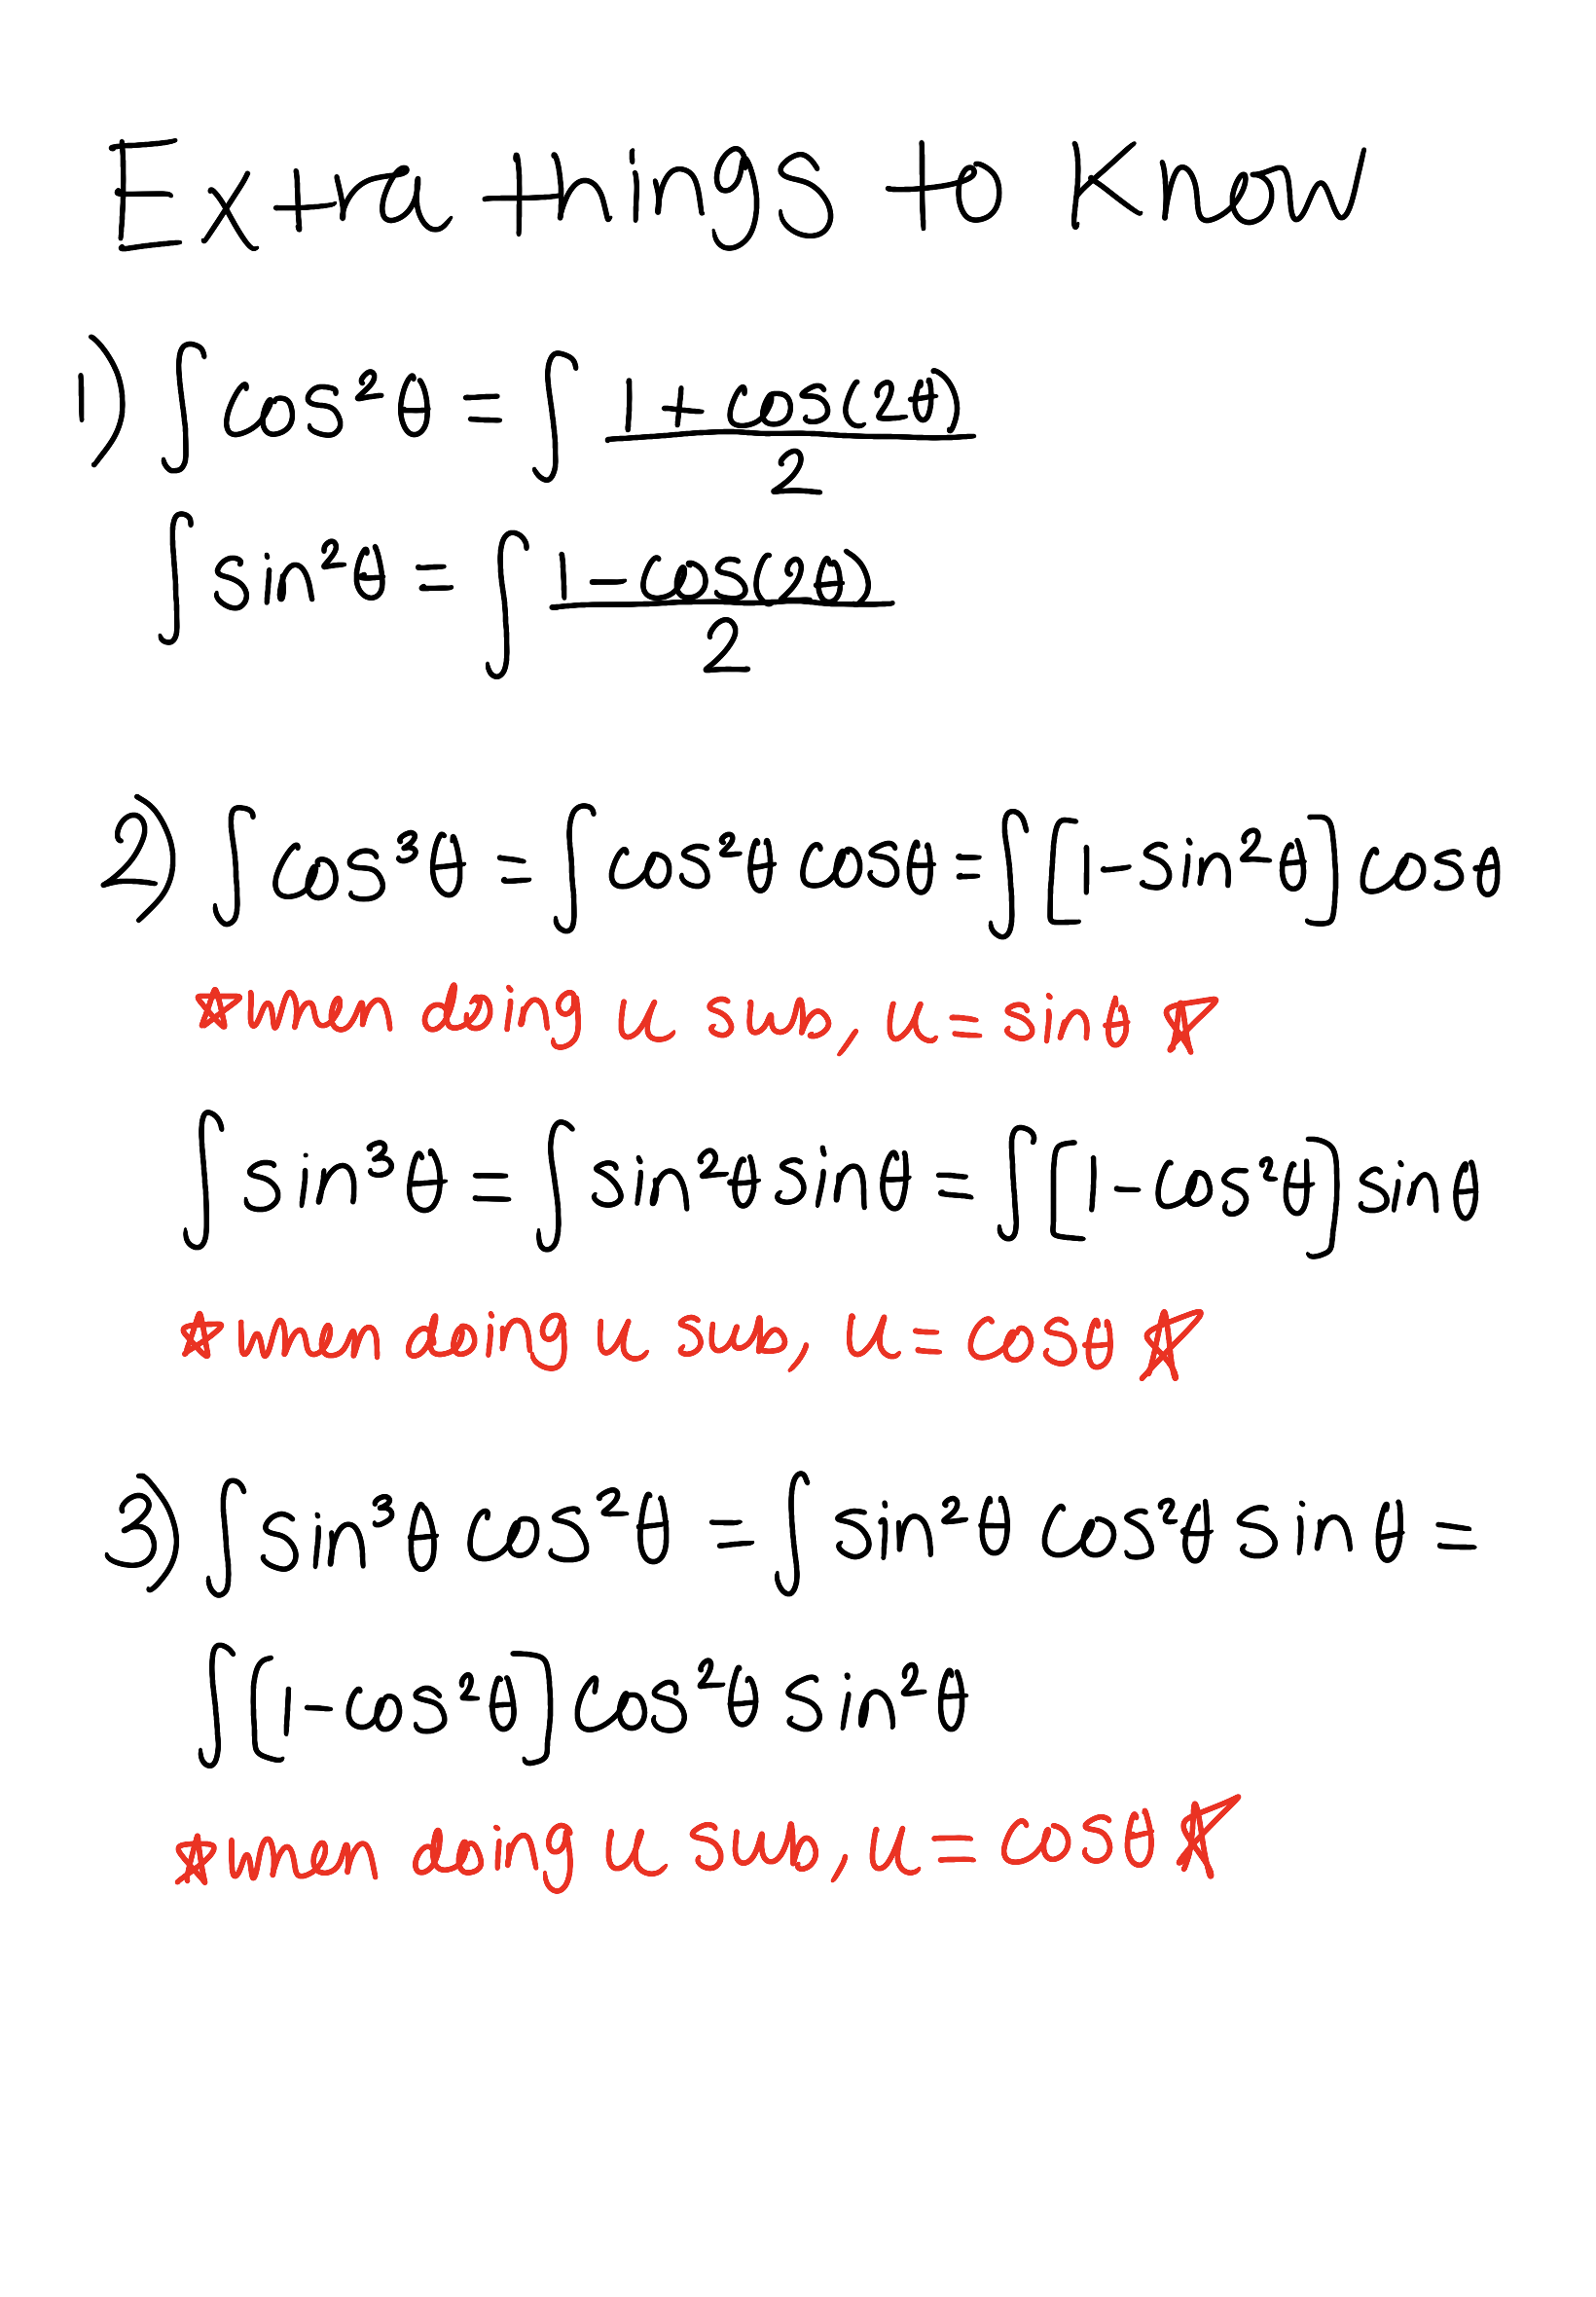 Extra things to know
1) ∫ cos²θ = ∫ (1 + cos(2θ))/2
∫ sin²θ = ∫ (1 - cos(2θ))/2
2) ∫ cos³θ = ∫ cos²θ cosθ = ∫ [1-sin²θ] cosθ
☆when doing u sub, u = sinθ ☆
∫ sin³θ = ∫ sin²θ sinθ = ∫ [1-cos²θ] sinθ
☆ when doing u sub, u = cosθ ☆
3) ∫ sin³θ cos²θ = ∫ sin²θ cos²θ sinθ =
∫ [1-cos²θ] cos²θ sin²θ
☆when doing u sub, u = cosθ ☆